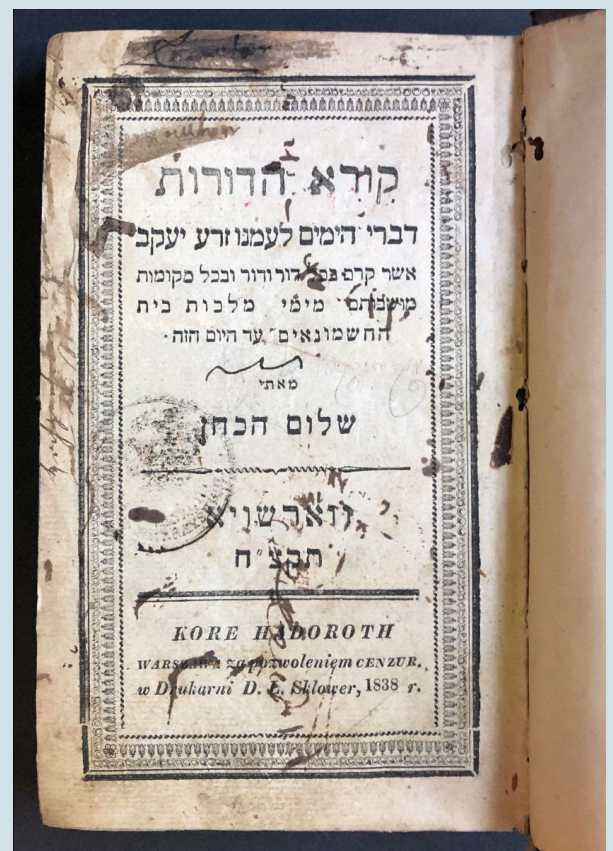 קורא הדורות
דברי הימים לעמנו זרע יעקב
אשר קרם בכל דור ודור ובכל מקומות
מושבותם מימי מלכות בית
החשמונאים עד היום הזה.
מאתי
שלום הכהן
ווארשויא
תקצ״ח
KORE HADOROTH
WARSZAWA za pozwoleniem CENZUR.
w Drukarni D. L. Sklower, 1838 r.